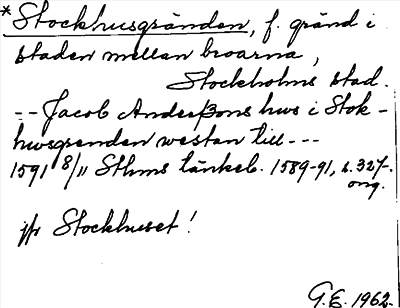 *Stockhusgränden, f. gränd i
staden mellan broarna,
Stockholms stad.
-- Jacob Anderßons hws i Stok-
hwsgrenden westan till ---
1591 8/11 Sthms tänkeb. 1589-91, s. 327.
orig.
jfr Stockhuset!
G.E. 1962.